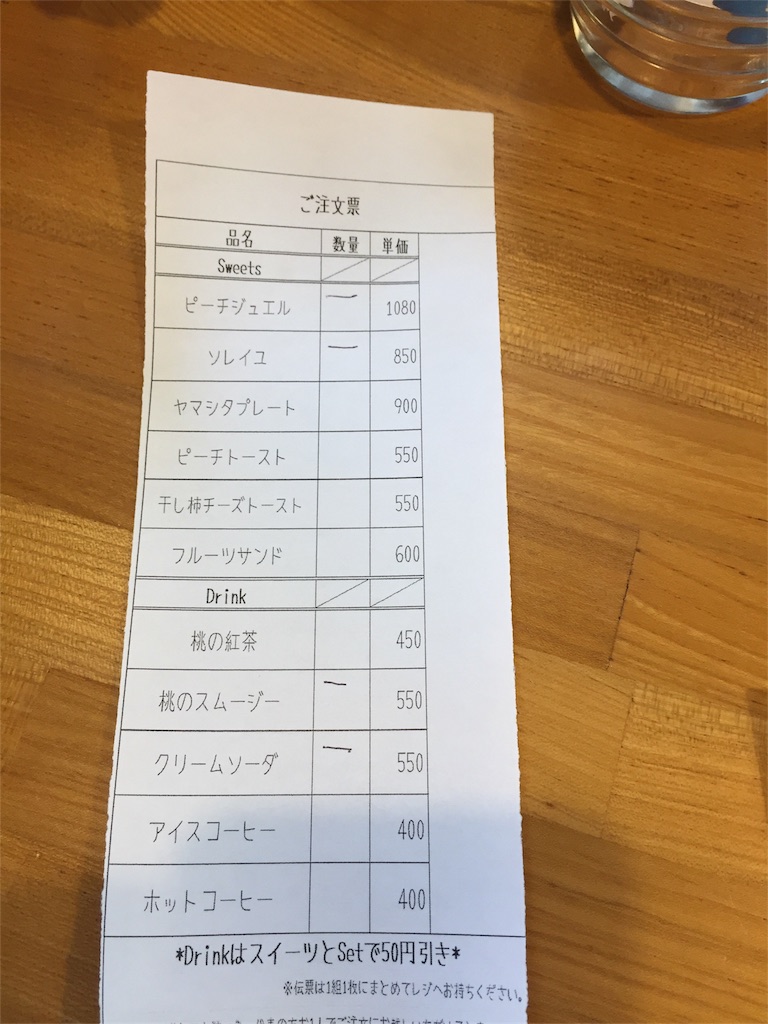 ご注文票
品名 数量 単価
Sweets
ピーチジュエル 一 1080
ソレイユ 一 850
ヤマシタプレート 900
ピーチトースト 550
干し柿チーズトースト 550
フルーツサンド 600
Drink
桃の紅茶 450
桃のスムージー 一 550
クリームソーダ 一 550
アイスコーヒー 400
ホットコーヒー 400
*DrinkはスイーツとSetで50円引き*
※伝票は1組1枚にまとめてレジへお持ちください。